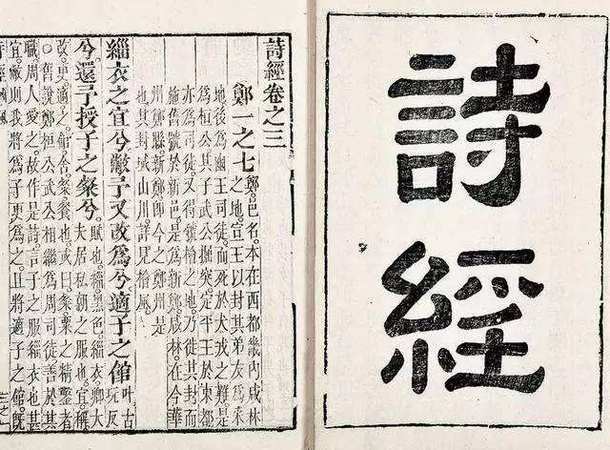 詩經
詩經卷之三
鄭一之七
鄭。邑名。本在西都畿內咸林
之地。宣王以封其弟友爲采
地後爲幽王司徒。而死於犬戎之難。是
爲桓公。其子武公掘突定平王於東都
亦爲司徒。又得虢檜之地。乃徙其封而
施舊號於新邑。是爲新鄭。咸林。在今華
州鄭縣。新鄭。即今之鄭州是
也。其封域山川。詳見檜風。
緇衣之宜兮。敝予又改爲兮。適子之館
叶古
玩反
兮。還予授子之粲兮。
賦也。緇。黑色。緇衣。卿大
夫居私朝之服也。宜。稱
改。更。適。之。館。舍。粲。餐也。或曰。粲。粟之精鑿者
○舊說。鄭桓公武公。相繼爲周司徒。善於其
職。周人愛之。故作是詩。言子之服緇衣也。甚
宜。敝。則我將爲子更爲之。且將適子之館。旣